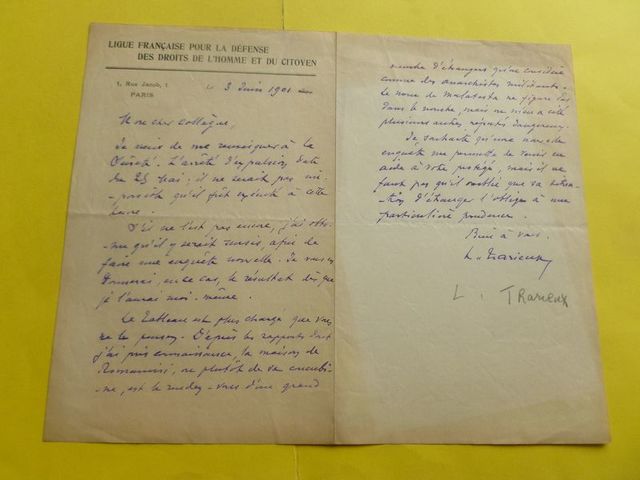 LIGUE FRANÇAISE POUR LA DÉFENSE
DES DROITS DE L'HOMME ET DU CITOYEN
1, Rue Jacob, 1
PARIS
le 3 Juin 1901
Mon cher collègue,
Je viens de me renseigner à la
Sûreté. L'arrêté d'expulsion date
du 25 Mai; il ne serait pas im-
possible qu'il fût exécuté à cette
heure.
S'il ne l'est pas encore, j'ai obte-
nu qu'il y serait sursis, afin de
faire une enquête nouvelle. Je vous
donnerai, en ce cas, le résultat dès que
je l'aurai moi-même.
Le tableau est plus chargé que vous
ne le pensez. D'après les rapports dont
j'ai pris connaissance, la maison de
ou plutôt de sa concubi-
ne, est le rendez-vous d'un grand
nombre d'étrangers qu'on considère
comme des anarchistes militants.
Le nom de Malatesta ne figure pas
dans le nombre, mais on m'en a cité
plusieurs autres réputés dangereux.
Je souhaite qu'une nouvelle
enquête me permette de venir en
aide à votre protégé, mais il ne
faut pas qu'il oublie que sa situa-
tion d'étranger l'oblige à une
particulière prudence.
Bien à vous.
L. Trarieux
L. TRARIEUX